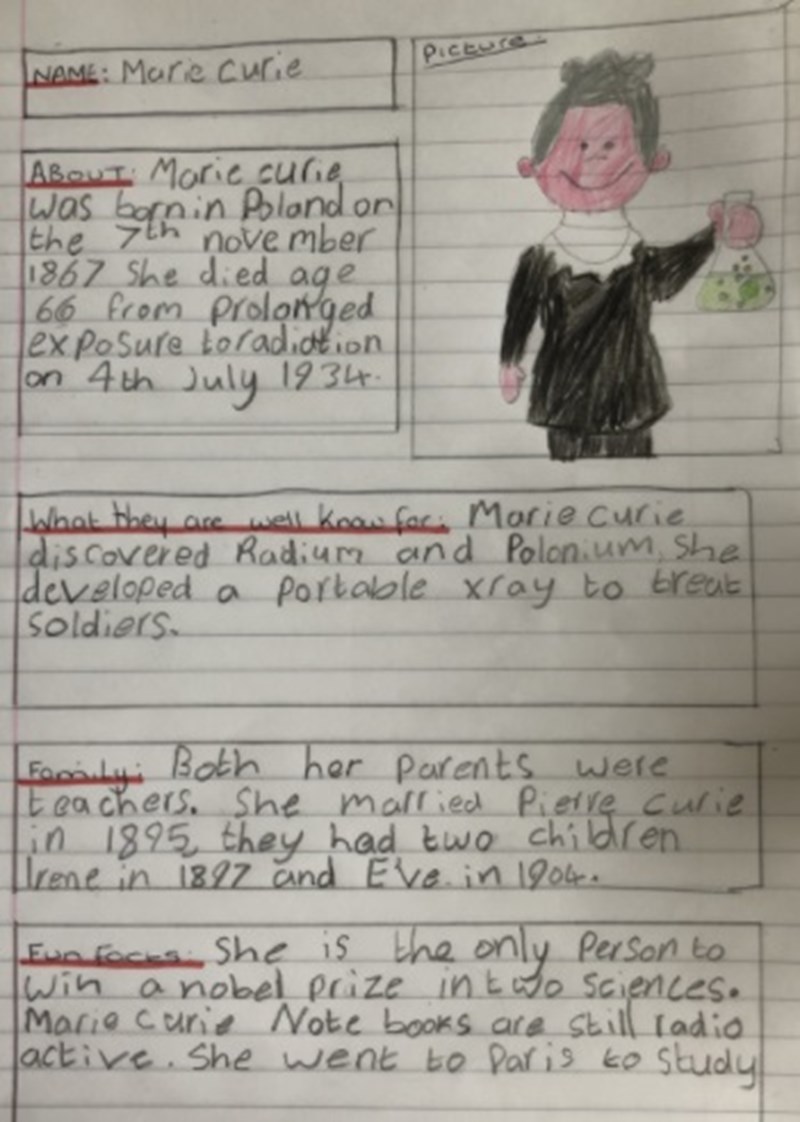 NAME: Marie Curie
Picture:
ABOUT: Marie curie
was born in Poland on
the 7th november
1867 She died age
66 from Prolonged
exposure to radiation
on 4th July 1934.
What they are well know for: Marie Curie
discovered Radium and Polonium, she
developed a portable xray to treat
soldiers.
Family: Both her parents were
teachers. She married Pierre Curie
in 1895, they had two children
Irene in 1897 and Eve in 1904.
Fun Facts: She is the only Person to
win a nobel prize in two sciences.
Marie Curie Note books are still radio
active. She went to Paris to study